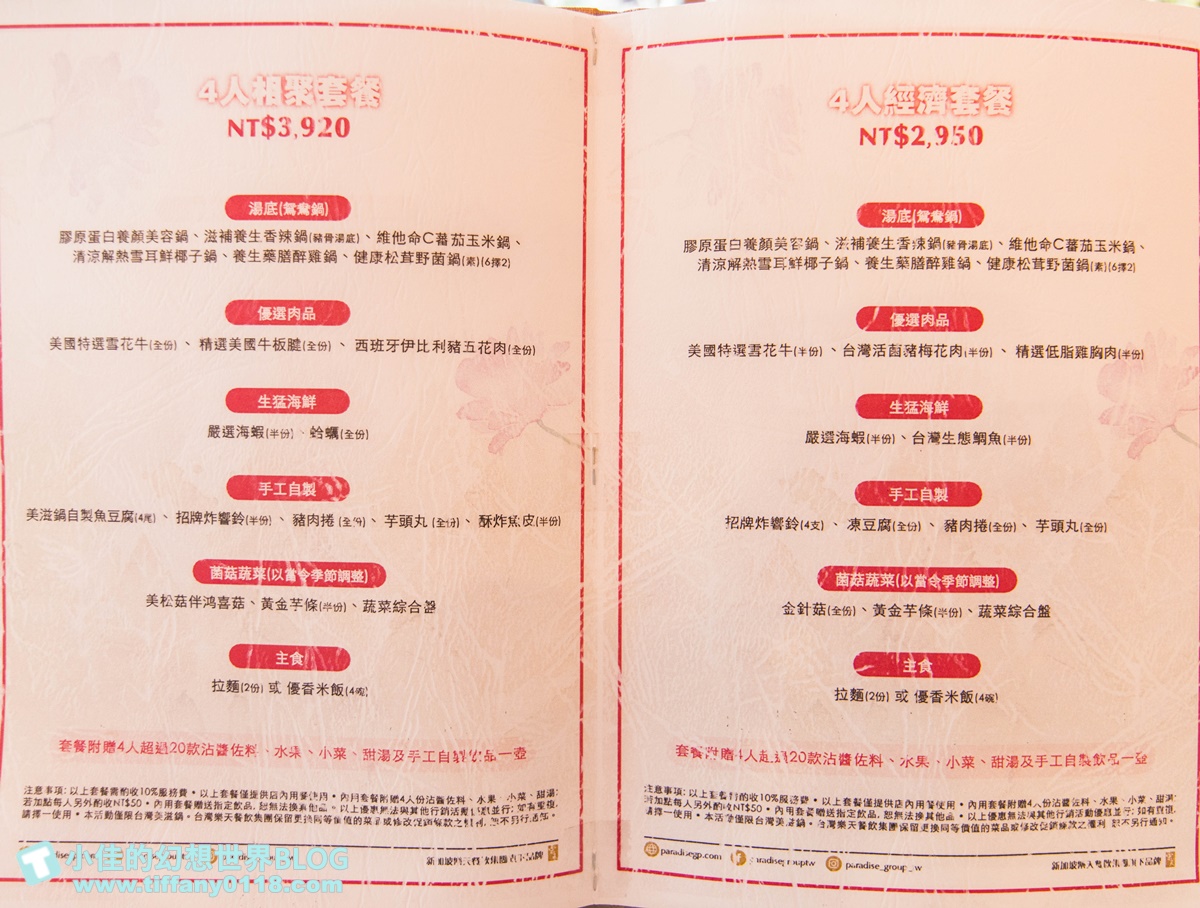 4人相聚套餐
NT$3,920
湯底(鴛鴦鍋)
膠原蛋白養顏美容鍋、滋補養生香辣鍋(豬骨湯底)、維他命C蕃茄玉米鍋、
清涼解熱雪耳鮮椰子鍋、養生藥膳醉雞鍋、健康松茸野菌鍋(素)(6擇2)
優選肉品
美國特選雪花牛(全份)、精選美國牛板腱(全份)、西班牙伊比利豬五花肉(全份)
生猛海鮮
嚴選海蝦(半份)、蛤蠣(全份)
手工自製
美滋鍋自製魚豆腐(4塊)、招牌炸響鈴(半份)、豬肉捲(全份)、芋頭丸(全份)、酥炸魚皮(半份)
菌菇蔬菜(以當令季節調整)
美松菇伴鴻喜菇、黃金芋條(半份)、蔬菜綜合盤
主食
拉麵(2份) 或 優香米飯(4碗)
套餐附贈4人超過20款沾醬佐料、水果、小菜、甜湯及手工自製飲品一壺
注意事項: 以上套餐需酌收10%服務費・以上套餐僅提供店內用餐使用・內用套餐附贈4人份沾醬佐料、水果、小菜、甜湯;
若加點每人另外酌收NT$50・內用套餐贈送指定飲品, 恕無法換其他品・以上優惠無法與其他行銷活動優惠並行; 如有重複,
請擇一使用・本活動僅限台灣美滋鍋。台灣樂天餐飲集團保留更換同等價值的菜品或修改促銷條款之權利, 恕不另行通知。
新加坡樂天餐飲集團旗下品牌
4人經濟套餐
NT$2,950
湯底(鴛鴦鍋)
膠原蛋白養顏美容鍋、滋補養生香辣鍋(豬骨湯底)、維他命C蕃茄玉米鍋、
清涼解熱雪耳鮮椰子鍋、養生藥膳醉雞鍋、健康松茸野菌鍋(素)(6擇2)
優選肉品
美國特選雪花牛(半份)、台灣活菌豬梅花肉(半份)、精選低脂雞胸肉(半份)
生猛海鮮
嚴選海蝦(半份)、台灣生態鯛魚(半份)
手工自製
招牌炸響鈴(4支)、凍豆腐(全份)、豬肉捲(全份)、芋頭丸(全份)
菌菇蔬菜(以當令季節調整)
金針菇(全份)、黃金芋條(半份)、蔬菜綜合盤
主食
拉麵(2份) 或 優香米飯(4碗)
套餐附贈4人超過20款沾醬佐料、水果、小菜、甜湯及手工自製飲品一壺
注意事項: 以上套餐需酌收10%服務費・以上套餐僅提供店內用餐使用・內用套餐附贈4人份沾醬佐料、水果、小菜、甜湯;
若加點每人另外酌收NT$50・內用套餐贈送指定飲品, 恕無法換其他品・以上優惠無法與其他行銷活動優惠並行; 如有重複,
請擇一使用・本活動僅限台灣美滋鍋。台灣樂天餐飲集團保留更換同等價值的菜品或修改促銷條款之權利, 恕不另行通知。
paradisegp.com paradisegrouptw paradise_group_tw
新加坡樂天餐飲集團旗下品牌
小佳的幻想世界BLOG
www.tiffany0118.com